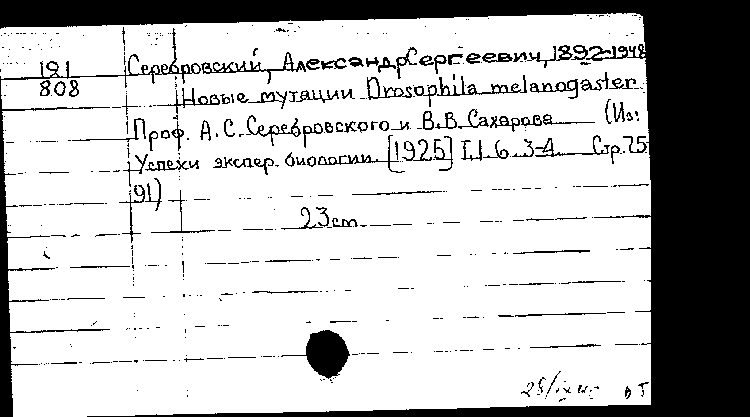 181 Серебровский, Александр Сергеевич, 1892-1948
808 Новые мутации Drosophila melanogaster
Проф. А.С. Серебровского и В.В. Сахарова (Из:
Успехи экспер. биологии. [1925] Т.1. б. 3-4. Стр. 75
91)
23 cm.